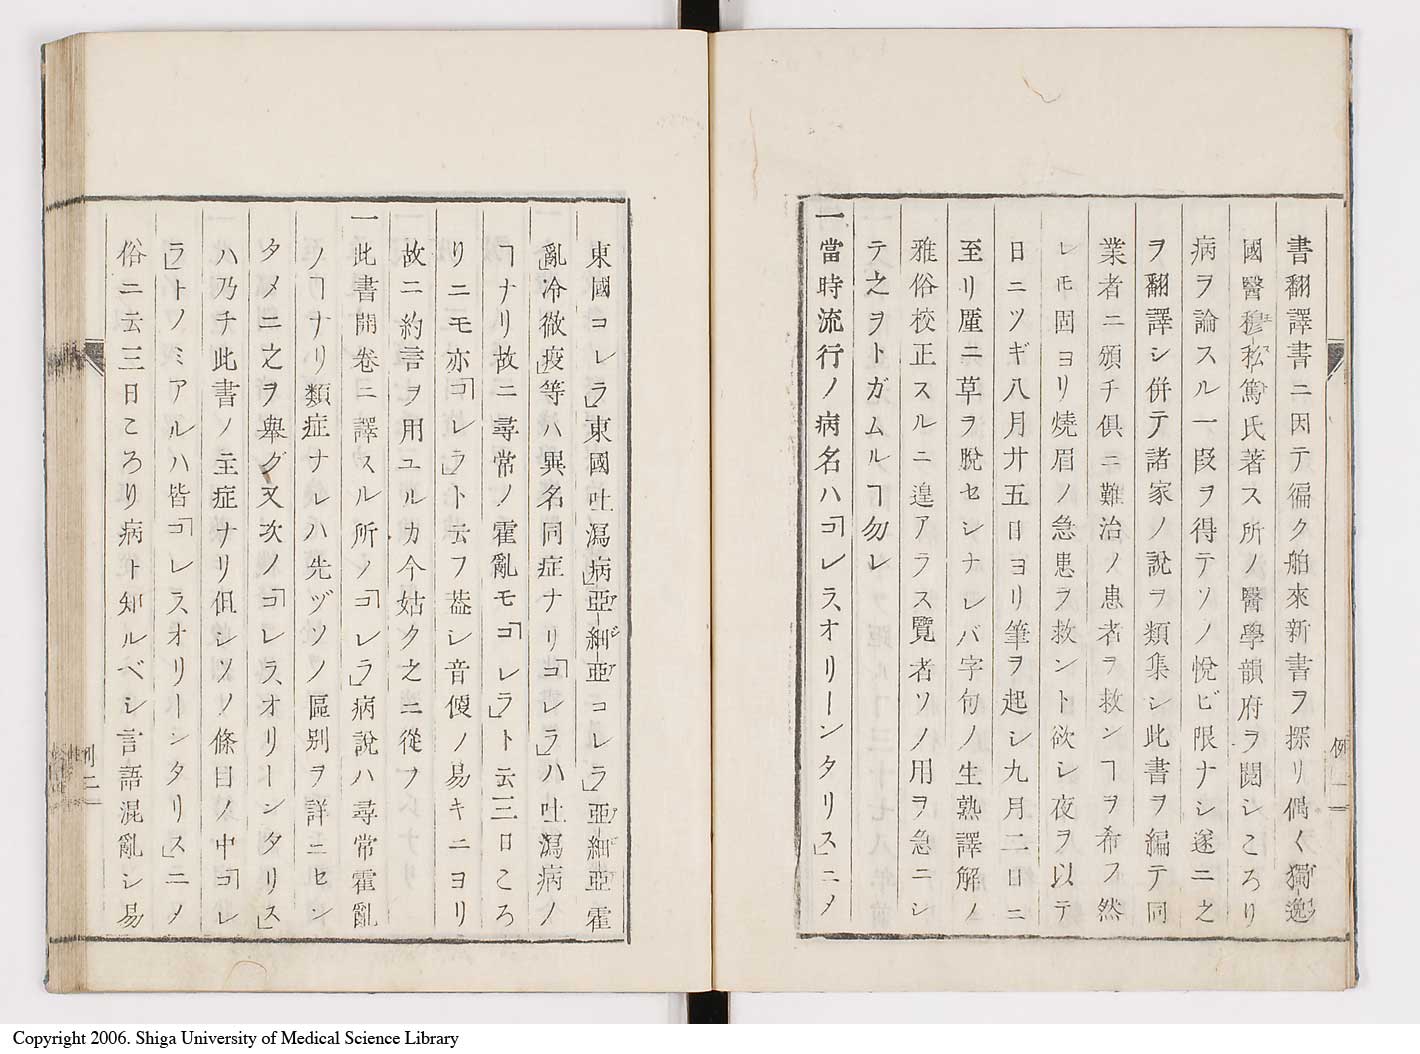 書翻譯書ニ因テ徧ク舶來新書ヲ探リ偶〻獨逸
國醫穆私篤氏著ス所ノ醫學韻府ヲ閲シころり
病ヲ論スル一段ヲ得テソノ悅ビ限ナシ遂ニ之
ヲ翻譯シ併テ諸家ノ說ヲ類集シ此書ヲ編テ同
業者ニ頒チ俱ニ難治ノ患者ヲ救ンヿヲ希フ然
レモ固ヨリ燒眉ノ急患ヲ救ント欲レ夜ヲ以テ
日ニツギ八月廿五日ヨリ筆ヲ起シ九月二日ニ
至リ厪ニ草ヲ脫セシナレバ字句ノ生熟譯解ノ
雅俗校正スルニ遑アラス覽者ソノ用ヲ急ニシ
テ之ヲトガムルヿ勿レ
一當時流行ノ病名ハ「コレラ、オリーンタリス」ニメ
例一
東國コレラ」東國吐瀉病」亞細亞コレラ」亞細亞霍
亂」冷徴疫」等ハ異名同症ナリ「コレラ」ハ吐瀉病ノ
ヿナリ故ニ尋常ノ霍亂モ「コレラ」ト云三日ころ
リニモ亦「コレラ」ト云フ葢シ音便ノ易キニヨリ
故ニ約言ヲ用ユルカ今姑ク之ニ從フ
一此書開卷ニ譯スル所ノ「コレラ」病說ハ尋常霍亂
ノヿナリ類症ナレハ先ヅソノ區別ヲ詳ニセン
タメニ之ヲ擧グ又次ノ「コレラ、オリーンタリス」
ハ乃チ此書ノ主症ナリ但シソノ條目ノ中「コレ
ラ」トノミアルハ皆「コレラ、オリーンタリス」ニメ
俗ニ云三日ころり病ト知ルベシ言語混亂シ易
例二
Copyright 2006. Shiga University of Medical Science Library